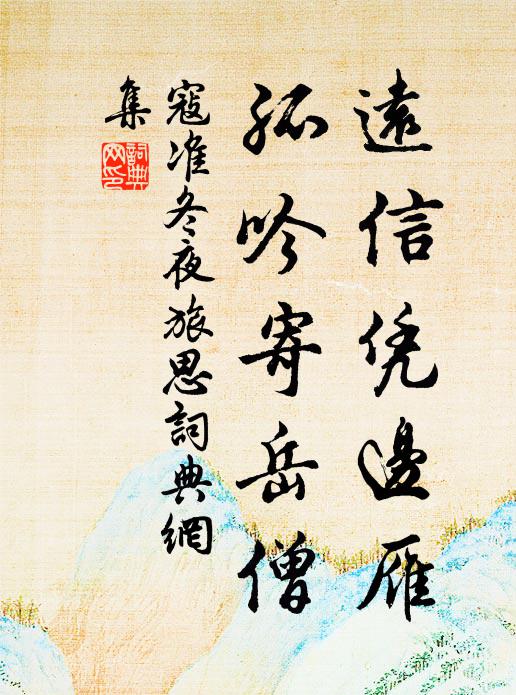 遠信凭邊雁
孤吟寄岳僧
寇准冬夜旅思詞典網
集
詞典
网印